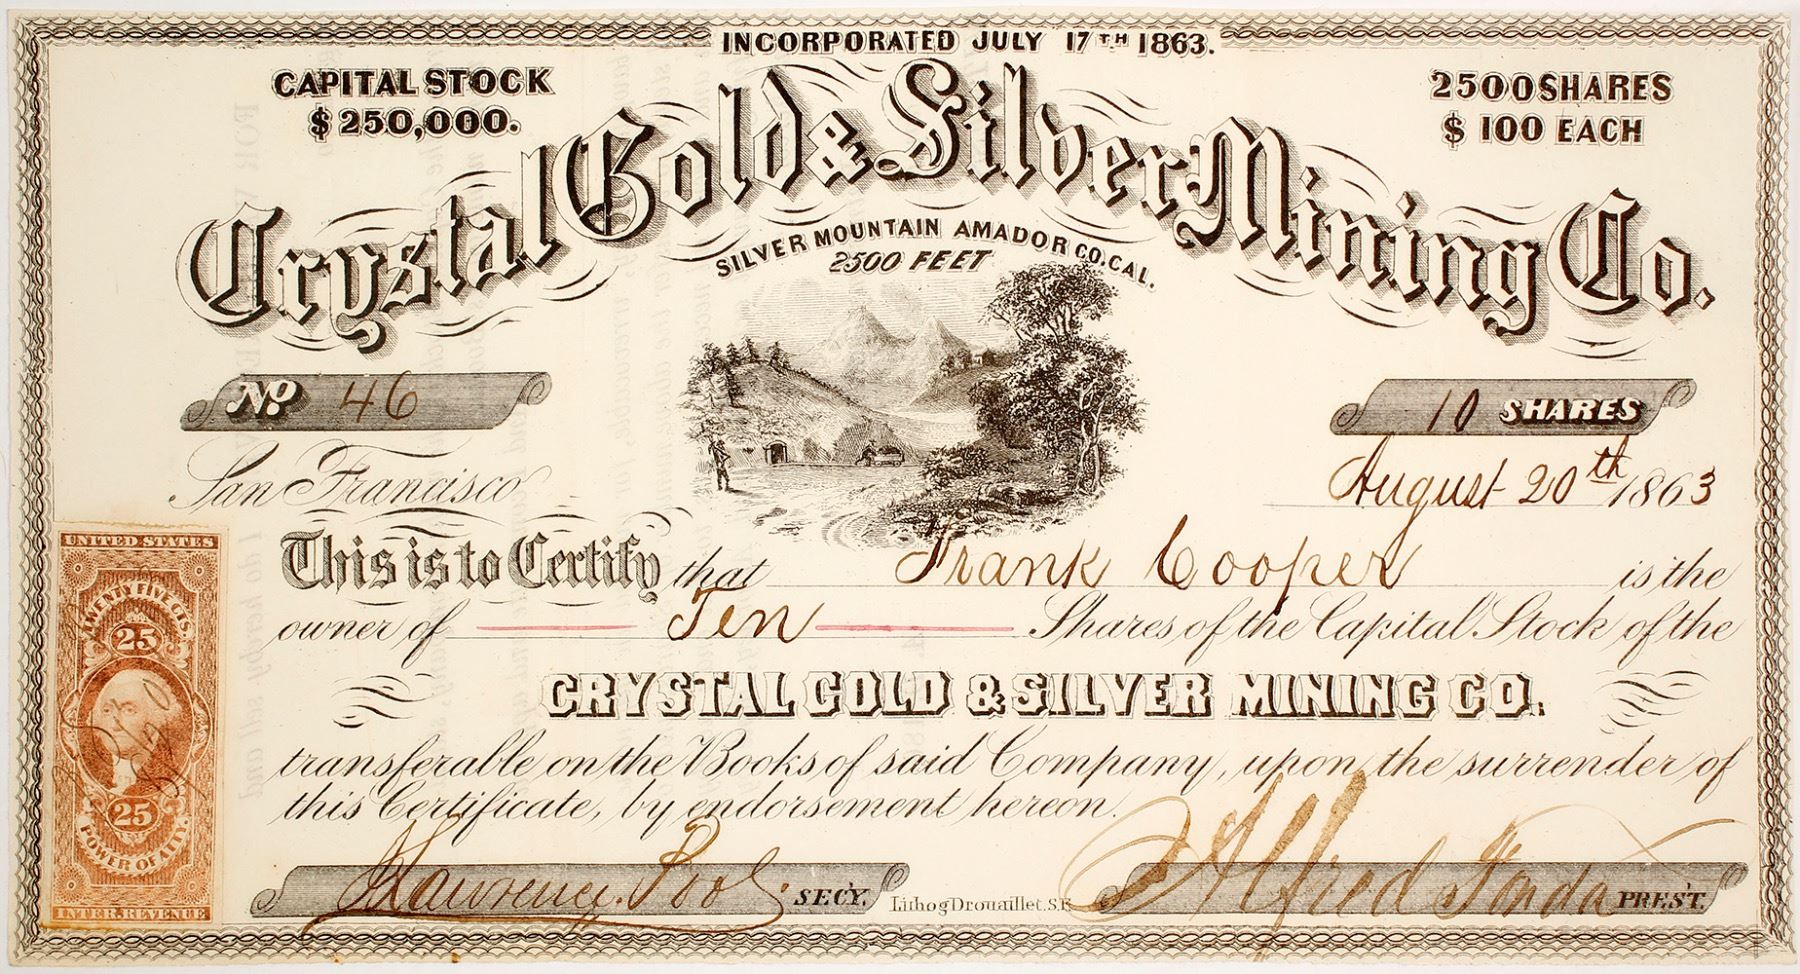 INCORPORATED JULY 17TH 1863.
CAPITAL STOCK
$250,000.
2500 SHARES
$100 EACH
Crystal Gold & Silver Mining Co.
SILVER MOUNTAIN AMADOR CO. CAL.
2500 FEET
No. 46
10 SHARES
San Francisco August 20th 1863
This is to Certify that Frank Cooper is the
owner of Ten Shares of the Capital Stock of the
CRYSTAL GOLD & SILVER MINING CO.
transferable on the Books of said Company, upon the surrender of
this Certificate, by endorsement hereon.
Lawrence Pool SECY.
Lithog Drouaillet. S.F.
Alfred Fonda PREST.
UNITED STATES
TWENTY FIVE CTS.
25
25
POWER OF ATTY.
INTER. REVENUE